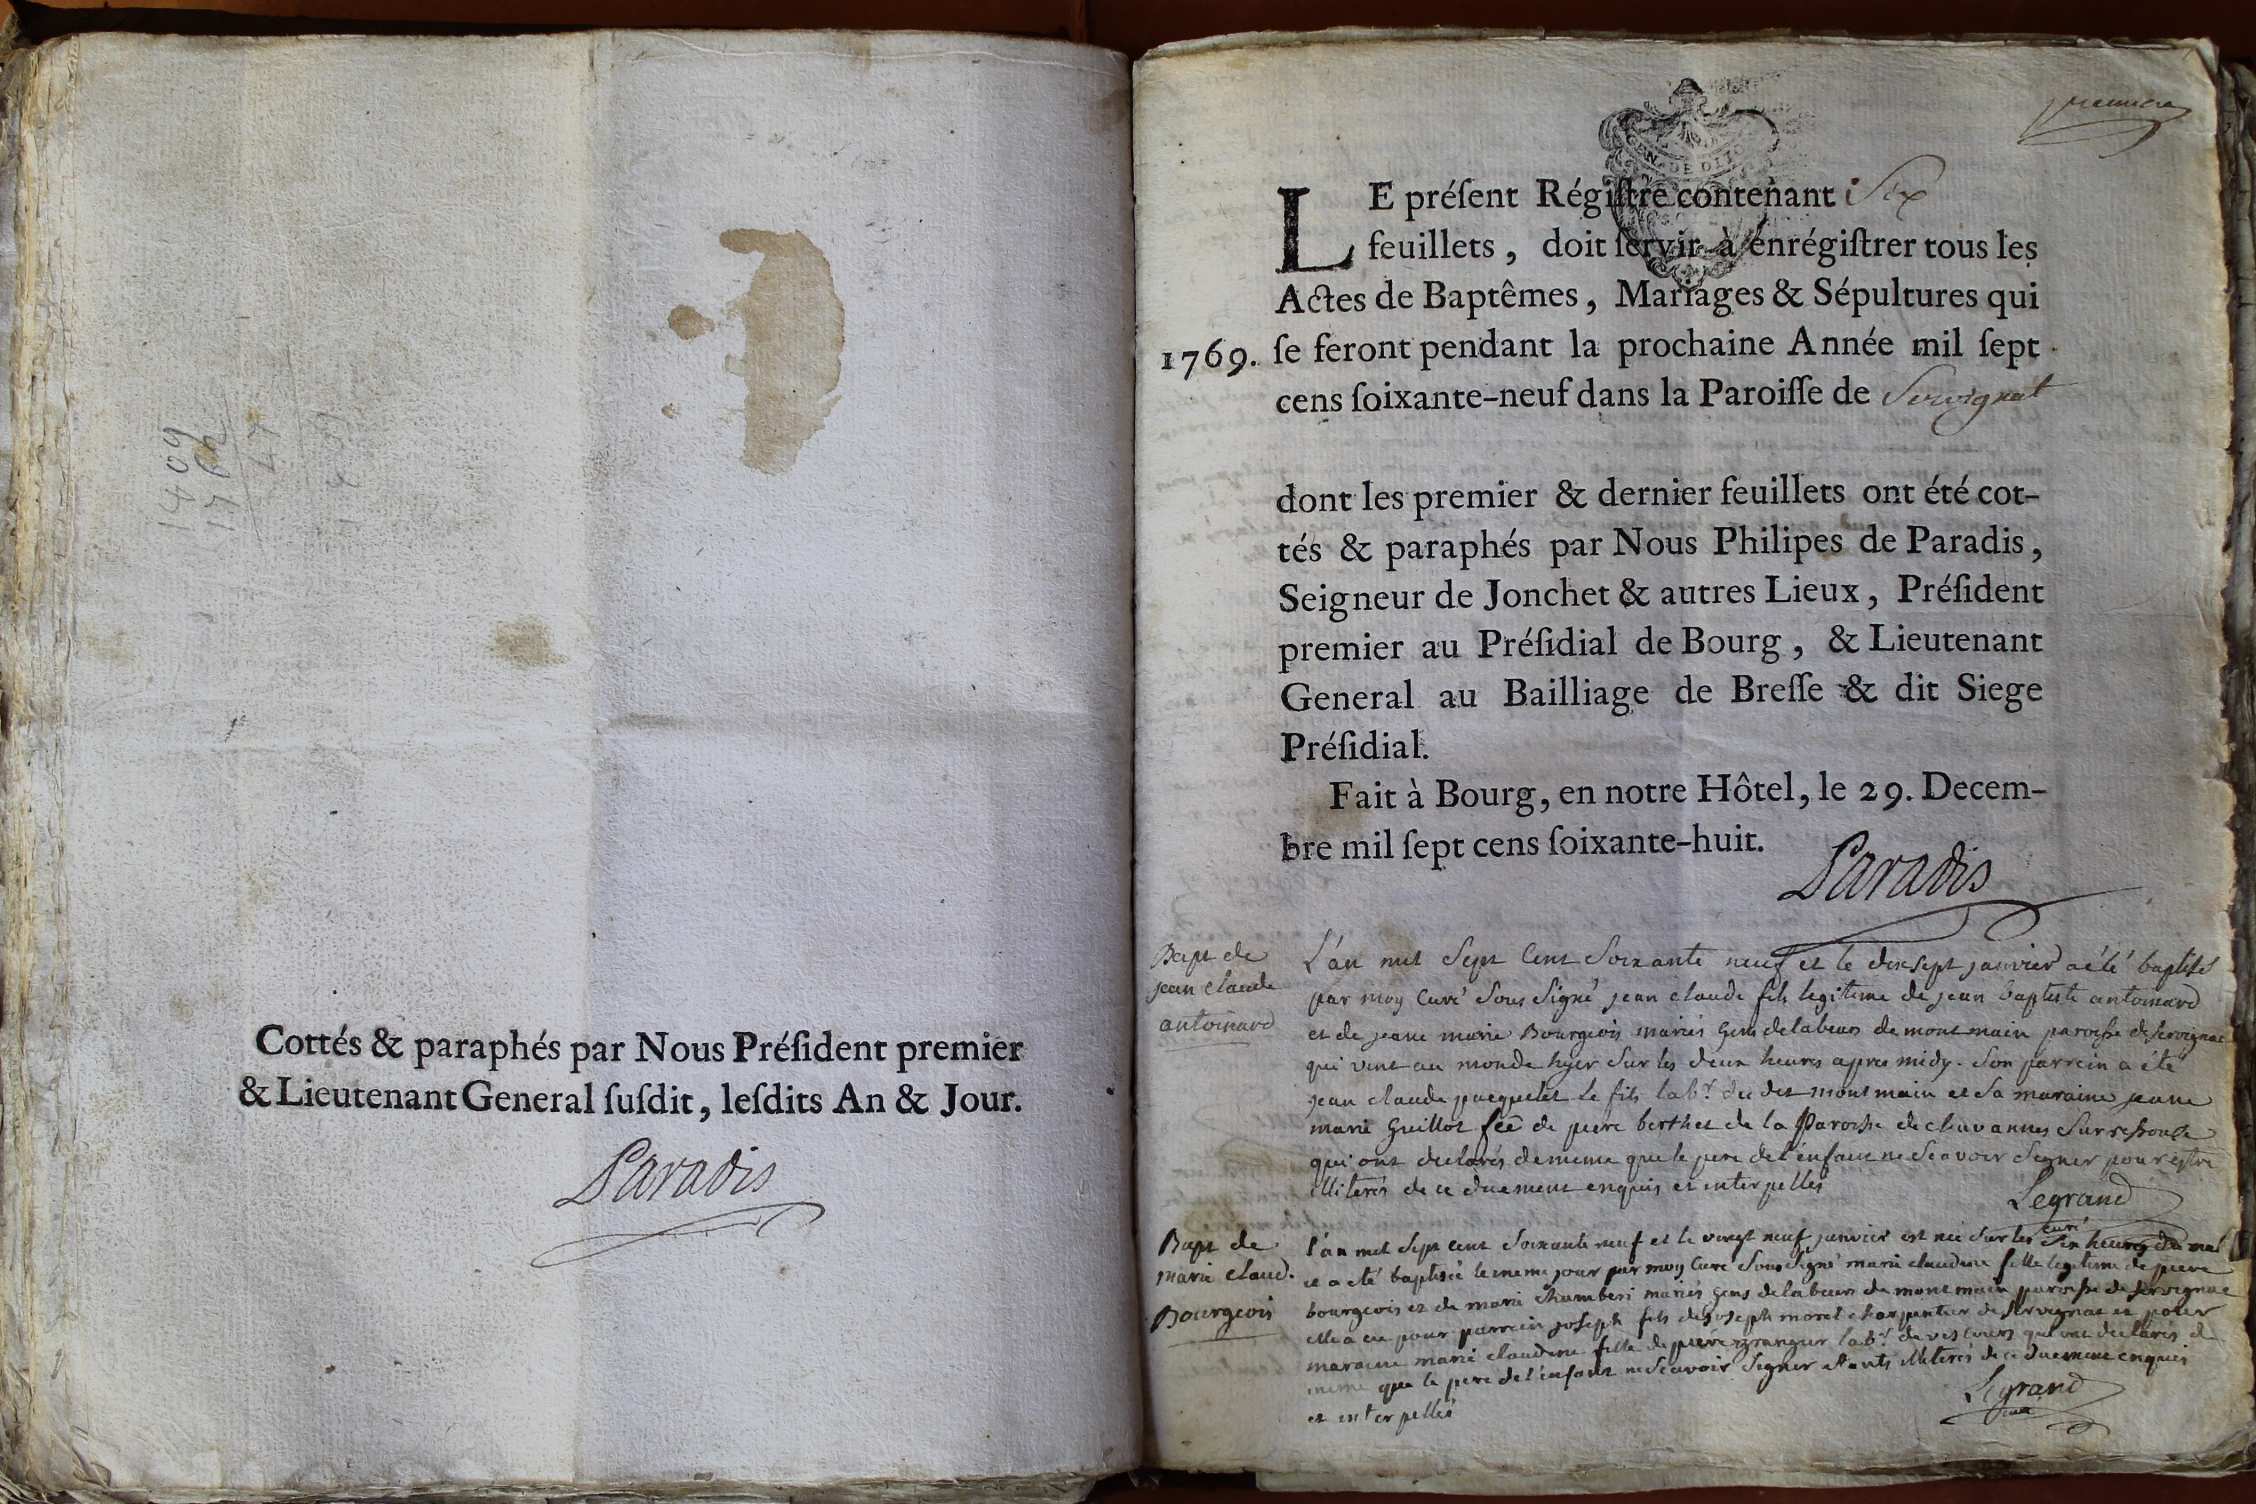 1409
Cottés & paraphés par Nous Préſident premier
& Lieutenant General ſuſdit, leſdits An & Jour.
Paradis
premiere
GEN. DE DIJO
LE préſent Régiſtre contenant Six
feuillets, doit ſervir à enrégiſtrer tous les
Actes de Baptêmes, Mariages & Sépultures qui
1769. ſe feront pendant la prochaine Année mil ſept
cens ſoixante-neuf dans la Paroiſſe de Servignat
dont les premier & dernier feuillets ont été cot-
tés & paraphés par Nous Philipes de Paradis,
Seigneur de Jonchet & autres Lieux, Préſident
premier au Préſidial de Bourg, & Lieutenant
General au Bailliage de Breſſe & dit Siege
Préſidial.
Fait à Bourg, en notre Hôtel, le 29. Decem-
bre mil ſept cens ſoixante-huit.
Paradis
Bapt de
jean claude
antoinard
L'an mil Sept Cent Soixante neuf et le dixsept janvier a été baptisé
par moy Curé Sous Signé jean claude fils legitime de jean baptiste antoinard
et de jeane marie Bourgeois mariés gens de labeur de mont main paroisse de Servignat
qui vint au monde hyer Sur les deux heures apres midy. Son parrein a été
jean claude le fils lab.r du dit mont main et Sa maraine jeane
marie Guillot fee de piere berthet de la Paroisse de chavannes Sur ressouse
qui ont declarés de meme que le pere de l'enfant ne Scavoir Signer pour estre
illiterés de ce duement enquis et interpellés
Legrand
curé
Bapt de
marie claud.
Bourgeois
l'an mil Sept cent Soixante neuf et le vingt neuf janvier est née Sur les Six heures du mat
et a été baptisée le meme jour par moy Curé Sous Signé marie claudine fille legitime de piere
bourgeois et de marie Chamberi mariés gens de labeur de mont main paroisse de Servignat
elle a eu pour parrein joseph fils de joseph morel charpentier de Servignat et pour
maraine marie claudine fille de piere granger lab.r de vescours qui ont declarés de
meme que le pere de l'enfant ne Scavoir Signer étants illiterés de ce duement enquis
et interpellés
Legrand
curé